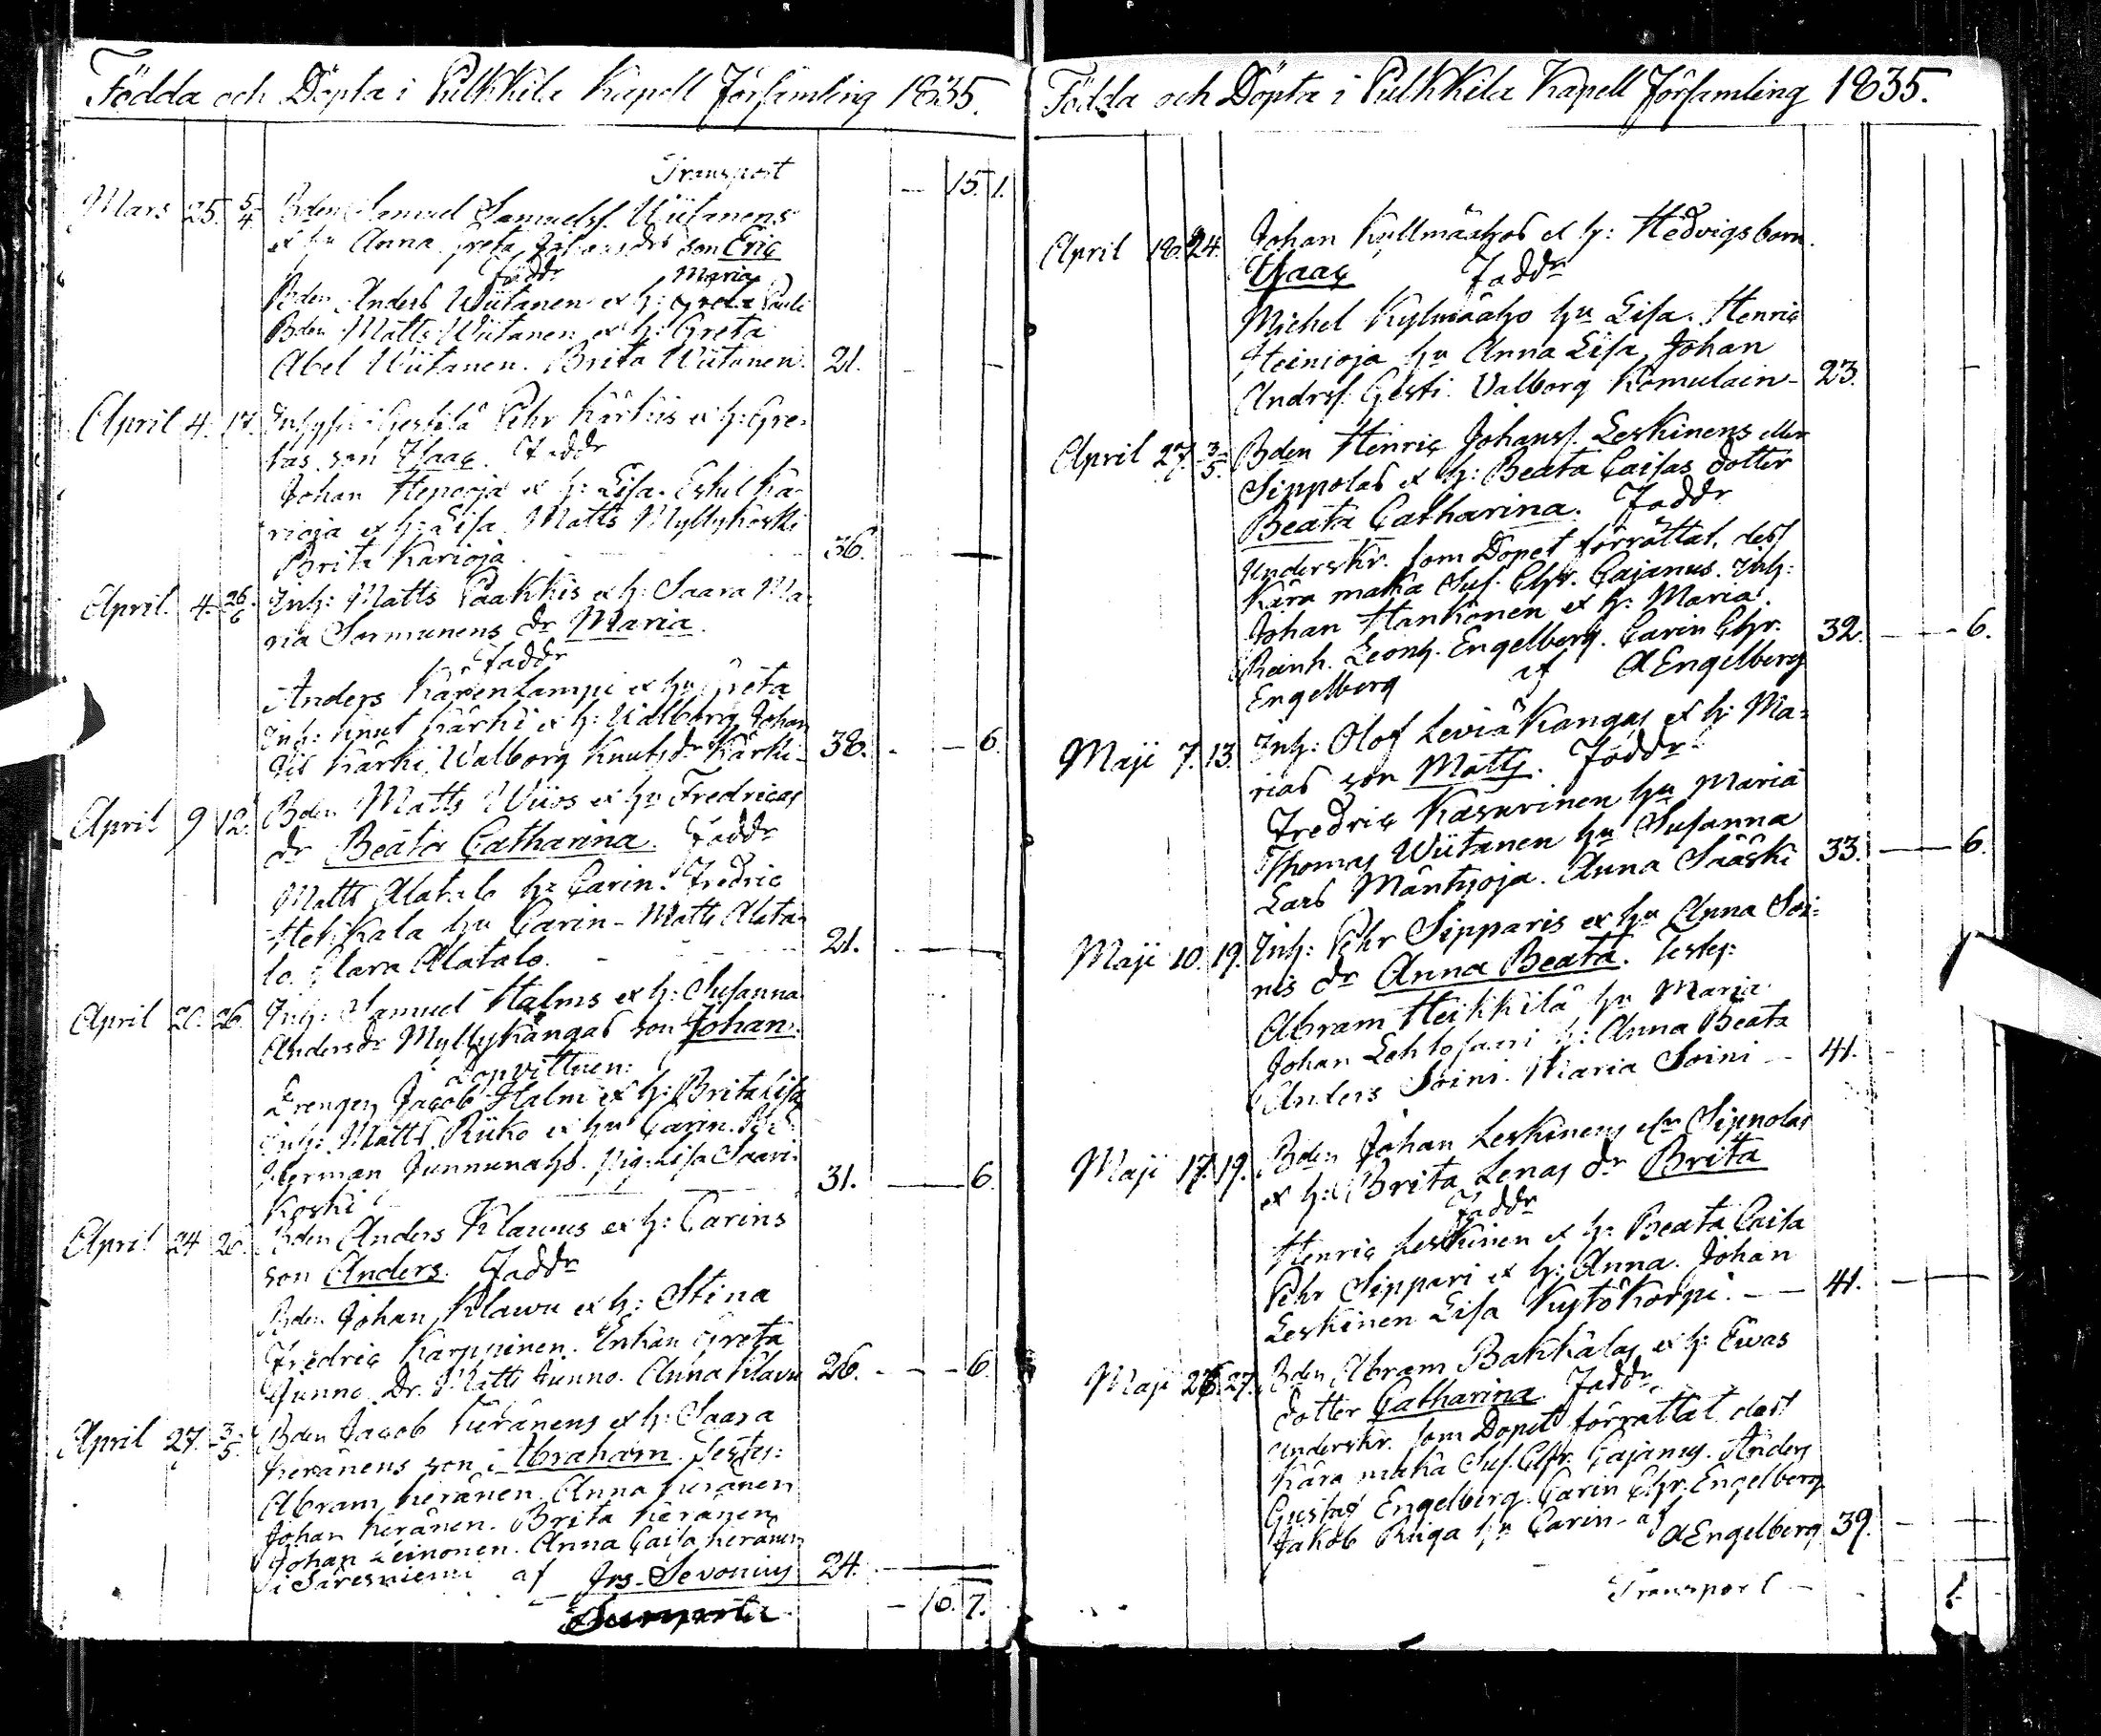 Födda och Döpta i Pulkkila Kapell Församling 1835.
Transport — 15. 1.
Mars 25. 5/4 Bden Samuel Samuelss. Wiitanens
ex hu Anna Greta son Eric
Faddr Maria
Bden Anders Wiitanen ex h: Greta
Bden Matts Wiitanen ex h: Greta
Abel Wiitanen. Brita Wiitanen. 21.
April 4. 17. Pehr Kärkis ex h: Gre-
tas son Isaac. Faddr
Johan ex h: Lisa. Eskil Ka-
rioja ex h: Lisa. Matts Myllykoski
Brita Karioja 36.
April. 4. 26/6 Inh: Matts Paakkis ex h: Saara Ma-
ria Sormunens dr Maria.
Faddr
Anders Kärenlampi ex hu Greta
Inh: Knut Kärki ex h: Walborg Johan
Kärki, Walborg Knutsdr Kärki - 38. - — 6.
April 9 12. Bden Matts Wiios ex hu Fredricas
dr Beata Catharina. Faddr
Matts Alatalo hu Carin. Fredric
hu Carin - Matts Alata-
lo. Clara Alatalo. 21.
April 20. 26. Inh: Samuel Halms ex h: Susanna
Andersdr Myllykangas son Johan.
Dopvittnen:
Drengen Jacob Halm ex h: Brita Lisa
Inh: Matts Riiko ex hu Carin.
Herman Junnunaho. pig: Lisa Saari-
koski 31. — 6.
April 24 26. Bden Anders Klawus ex h: Carins
son Anders. Faddr
Bden Johan Klawu ex h: Stina
Fredric Karppinen. Enkan Greta
Junno. Dr. Matts Junno. Anna Klavu 26. - - - 6.
April 27. 3/5. Bden Jacob Keränens ex h: Saara
Keränens son Abraham. Testes:
Abram Keränen. Anna Keränen
Johan Keränen. Brita Keränen
Johan Leinonen. Anna Caisa Keränen
i Säresniemi af Jrs. Sevonius 24.
- 16. 7.
Födda och Döpta i Pulkkila Kapell Församling 1835.
April 18. 24. Johan Kyllmäahos ex h: Hedvigs barn.
Isaac Faddr
Michel Kylmäaho hu Lisa. Henric
Heinioja hu Anna Lisa, Johan
Andrss. Gesti. Valborg Komulain- 23.
April 27. 3/5. Bden Henric Johanss. Leskinens eller
Sippolas ex h: Beata Caisas dotter
Beata Catharina. Faddr
Underskr. som Dopet förrättat, dess
Kära maka Sus. Chr. Cajanus. Inh:
Johan Hankonen ex h: Maria.
Reinh. Leonh. Engelberg. Carin Chr. 32. — - 6.
Engelberg af AEngelberg
Maji 7. 13. Inh: Olof Leviäkangas ex h: Ma-
rias son Matts. Faddr
Fredric Kasurinen hu Maria
Thomas Wiitanen hu Susanna
Lars Mäntyoja. Anna Sääski 33. — 6.
Maji 10. 19. Inh: Pehr Sipparis ex hu Anna Soi-
nis dr Anna Beata. Testes:
Abram Heikkilä hu Maria.
Johan Lehtosaari h: Anna Beata
Anders Soini. Maria Soini - 41.
Maji 17. 19. Bden Johan Leskinens elr Sippolas
ex h: Brita Lenas dr Brita
Faddr
Henric Leskinen ex h: Beata Caisa
Pehr Sippari ex h: Anna. Johan
Leskinen Lisa Kytökorpi. — 41.
Maji 26. 27. Bden Abram Bakkalas ex h: Ewas
dotter Catharina. Faddr
Underskr. som Dopet förrättat dess
Kära maka Sus. Chr. Cajanus. Anders
Gustaf Engelberg. Carin Chr. Engelberg
Jakob Riiga hu Carin - af AEngelberg 39.
Transport - 1.